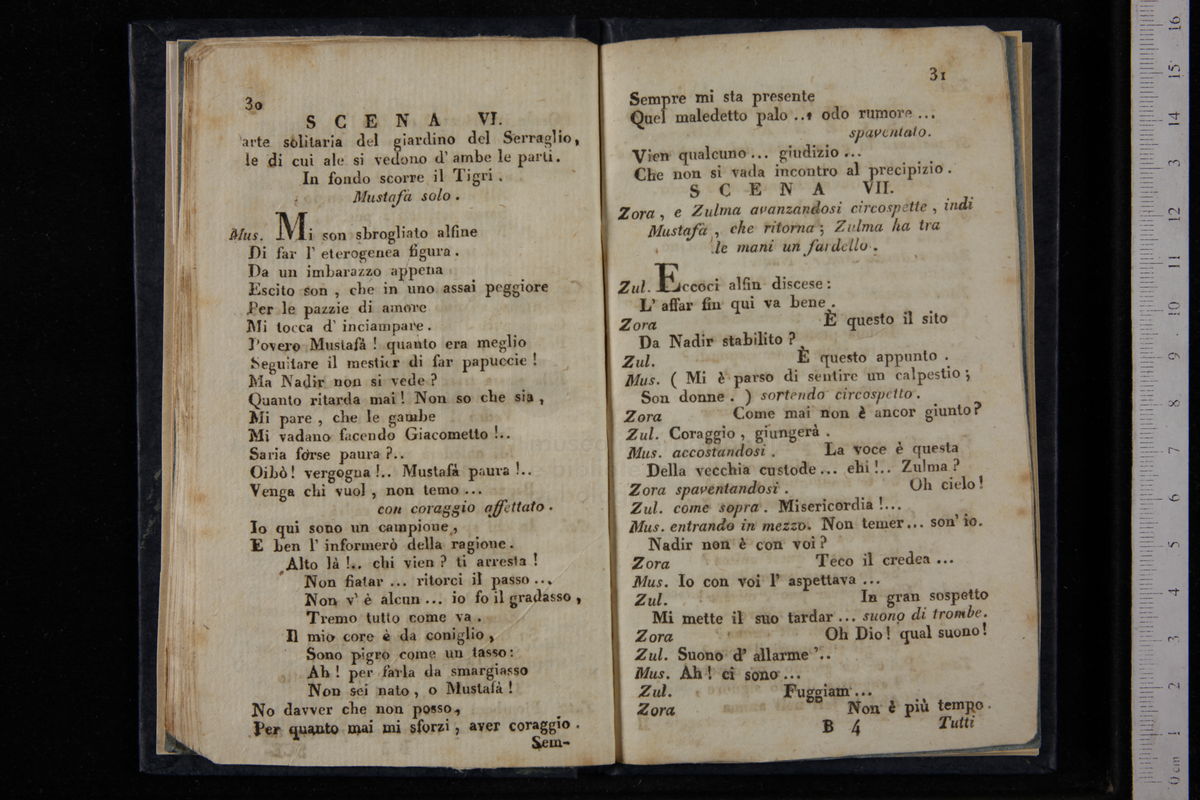 30
SCENA VI.
arte solitaria del giardino del Serraglio,
le di cui ale si vedono d' ambe le parti.
In fondo scorre il Tigri.
Mustafà solo.
Mus. Mi son sbrogliato alfine
Di far l' eterogenea figura.
Da un imbarazzo appena
Escito son, che in uno assai peggiore
Per le pazzie di amore
Mi tocca d' inciampare.
Povero Mustafà! quanto era meglio
Seguitare il mestier di far papuccie!
Ma Nadir non si vede?
Quanto ritarda mai! Non so che sia,
Mi pare, che le gambe
Mi vadano facendo Giacometto!..
Saria forse paura?..
Oibò! vergogna!.. Mustafà paura!..
Venga chi vuol, non temo...
con coraggio affettato.
Io qui sono un campione,
E ben l' informerò della ragione.
Alto là!.. chi vien? ti arresta!
Non fiatar... ritorci il passo...
Non v' è alcun... io fo il gradasso,
Tremo tutto come va.
Il mio core è da coniglio,
Sono pigro come un tasso:
Ah! per farla da smargiasso
Non sei nato, o Mustafà!
No davver che non posso,
Per quanto mai mi sforzi, aver coraggio.
Sem-
31
Sempre mi sta presente
Quel maledetto palo... odo rumore...
spaventato.
Vien qualcuno... giudizio...
Che non si vada incontro al precipizio.
SCENA VII.
Zora, e Zulma avanzandosi circospette, indi
Mustafà, che ritorna; Zulma ha tra
le mani un fardello.
Zul. Eccoci alfin discese:
L' affar fin qui va bene.
Zora È questo il sito
Da Nadir stabilito?
Zul. È questo appunto.
Mus. (Mi è parso di sentire un calpestio;
Son donne.) sortendo circospetto.
Zora Come mai non è ancor giunto?
Zul. Coraggio, giungerà.
Mus. accostandosi. La voce è questa
Della vecchia custode... ehi!.. Zulma?
Zora spaventandosi. Oh cielo!
Zul. come sopra. Misericordia!...
Mus. entrando in mezzo. Non temer... son' io.
Nadir non è con voi?
Zora Teco il credea...
Mus. Io con voi l' aspettava...
Zul. In gran sospetto
Mi mette il suo tardar... suono di trombe.
Zora Oh Dio! qual suono!
Zul. Suono d' allarme!..
Mus. Ah! ci sono...
Zul. Fuggiam...
Zora Non è più tempo.
B 4 Tutti
0 cm 1 2 3 4 5 6 7 8 9 10 11 12 13 14 15 16